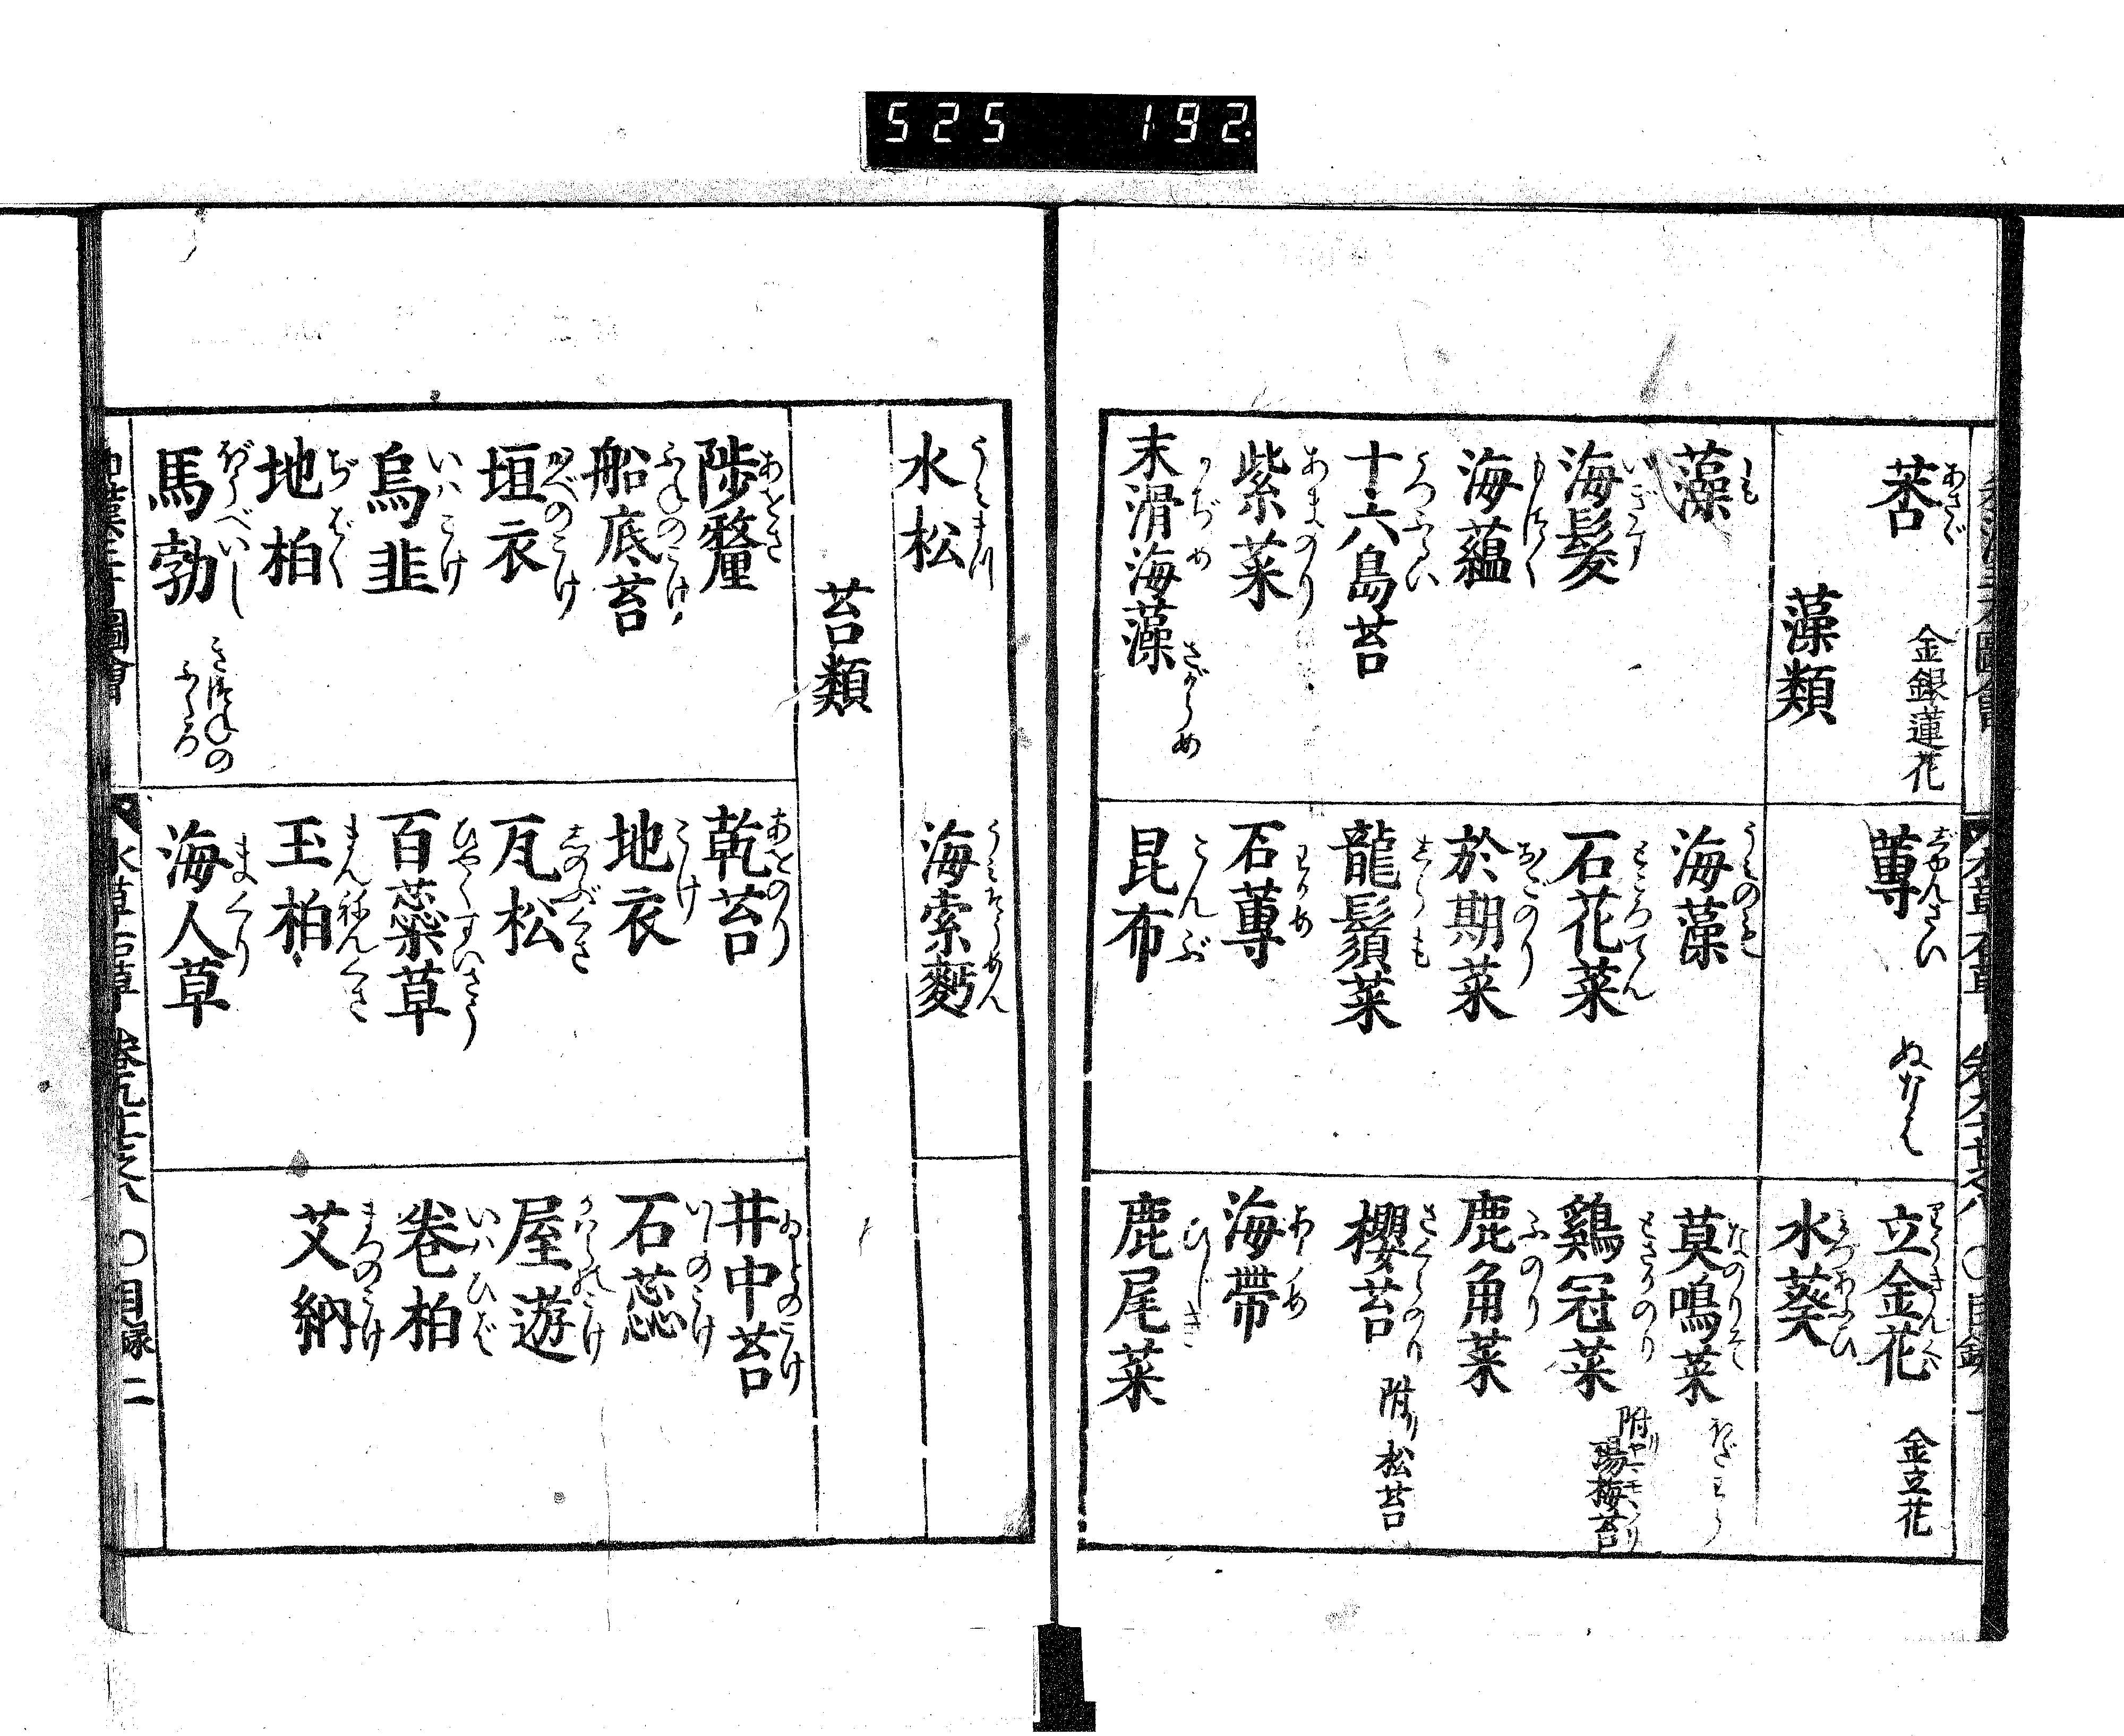 525 192
莕 あさゞ 金銀蓮花
蓴 じゆんさい ぬなは
立金花 りうきんくは 金立花
藻類
水葵 みづあふひ
藻 も
海藻 うみのも
莫鳴菜 なのりそ
海髪 いぎす
石花菜 ところてん
鶏冠菜 とさかのり 附リ 陽梅苔
海蘊 もづく
於期菜 おごのり
鹿角菜 ふのり
十六島苔 うつふるい
龍鬚菜 しらも
櫻苔 さくらのり 附リ 松苔
紫菜 あまのり
石蓴 わかめ
海帶 あらめ
末滑海藻 かぢめ さがらめ
昆布 こんぶ
鹿尾菜 ひじき
水松 うみまつ
海索麪 うみさうめん
苔類
陟釐 あをさ
乾苔 あをのり
井中苔 ゐとのこけ
船底苔 ふねのこけ
地衣 こけ
石蕊 いしのこけ
垣衣 かべのこけ
瓦松 しのぶぐさ
屋遊 かはらのこけ
烏韭 いはこけ
百蕊草 ひやくすいさう
巻柏 いはひば
地柏 ぢばく
玉柏 まんねんぐさ
艾納 まつのこけ
馬勃 ばうべいし きつねのふくろ
海人草 まくり
水草石草 巻九十之八 ○目録 二